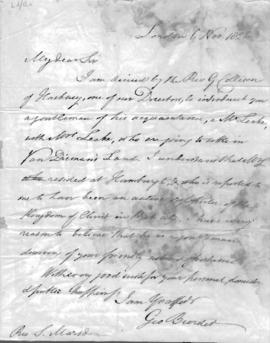 London 6 Nov 18
My dear Sir
I am desired by the Rev G Collison
of Hackney, one of our Directors, to introduce you
a gentleman of his acquaintance, a Mr Leake,
with Mrs Leake, who are going to settle in
Van Diemen's Land. I understand that Mr
resided at Hamburgh, & who is reported to
me to have been an active
Kingdom of Christ in that have every
reason to believe that he is a gentleman
deserving of your friendly
With every good wish for your personal, domestic
& public happiness
I am
Geo Burder
Rev S. Marsden